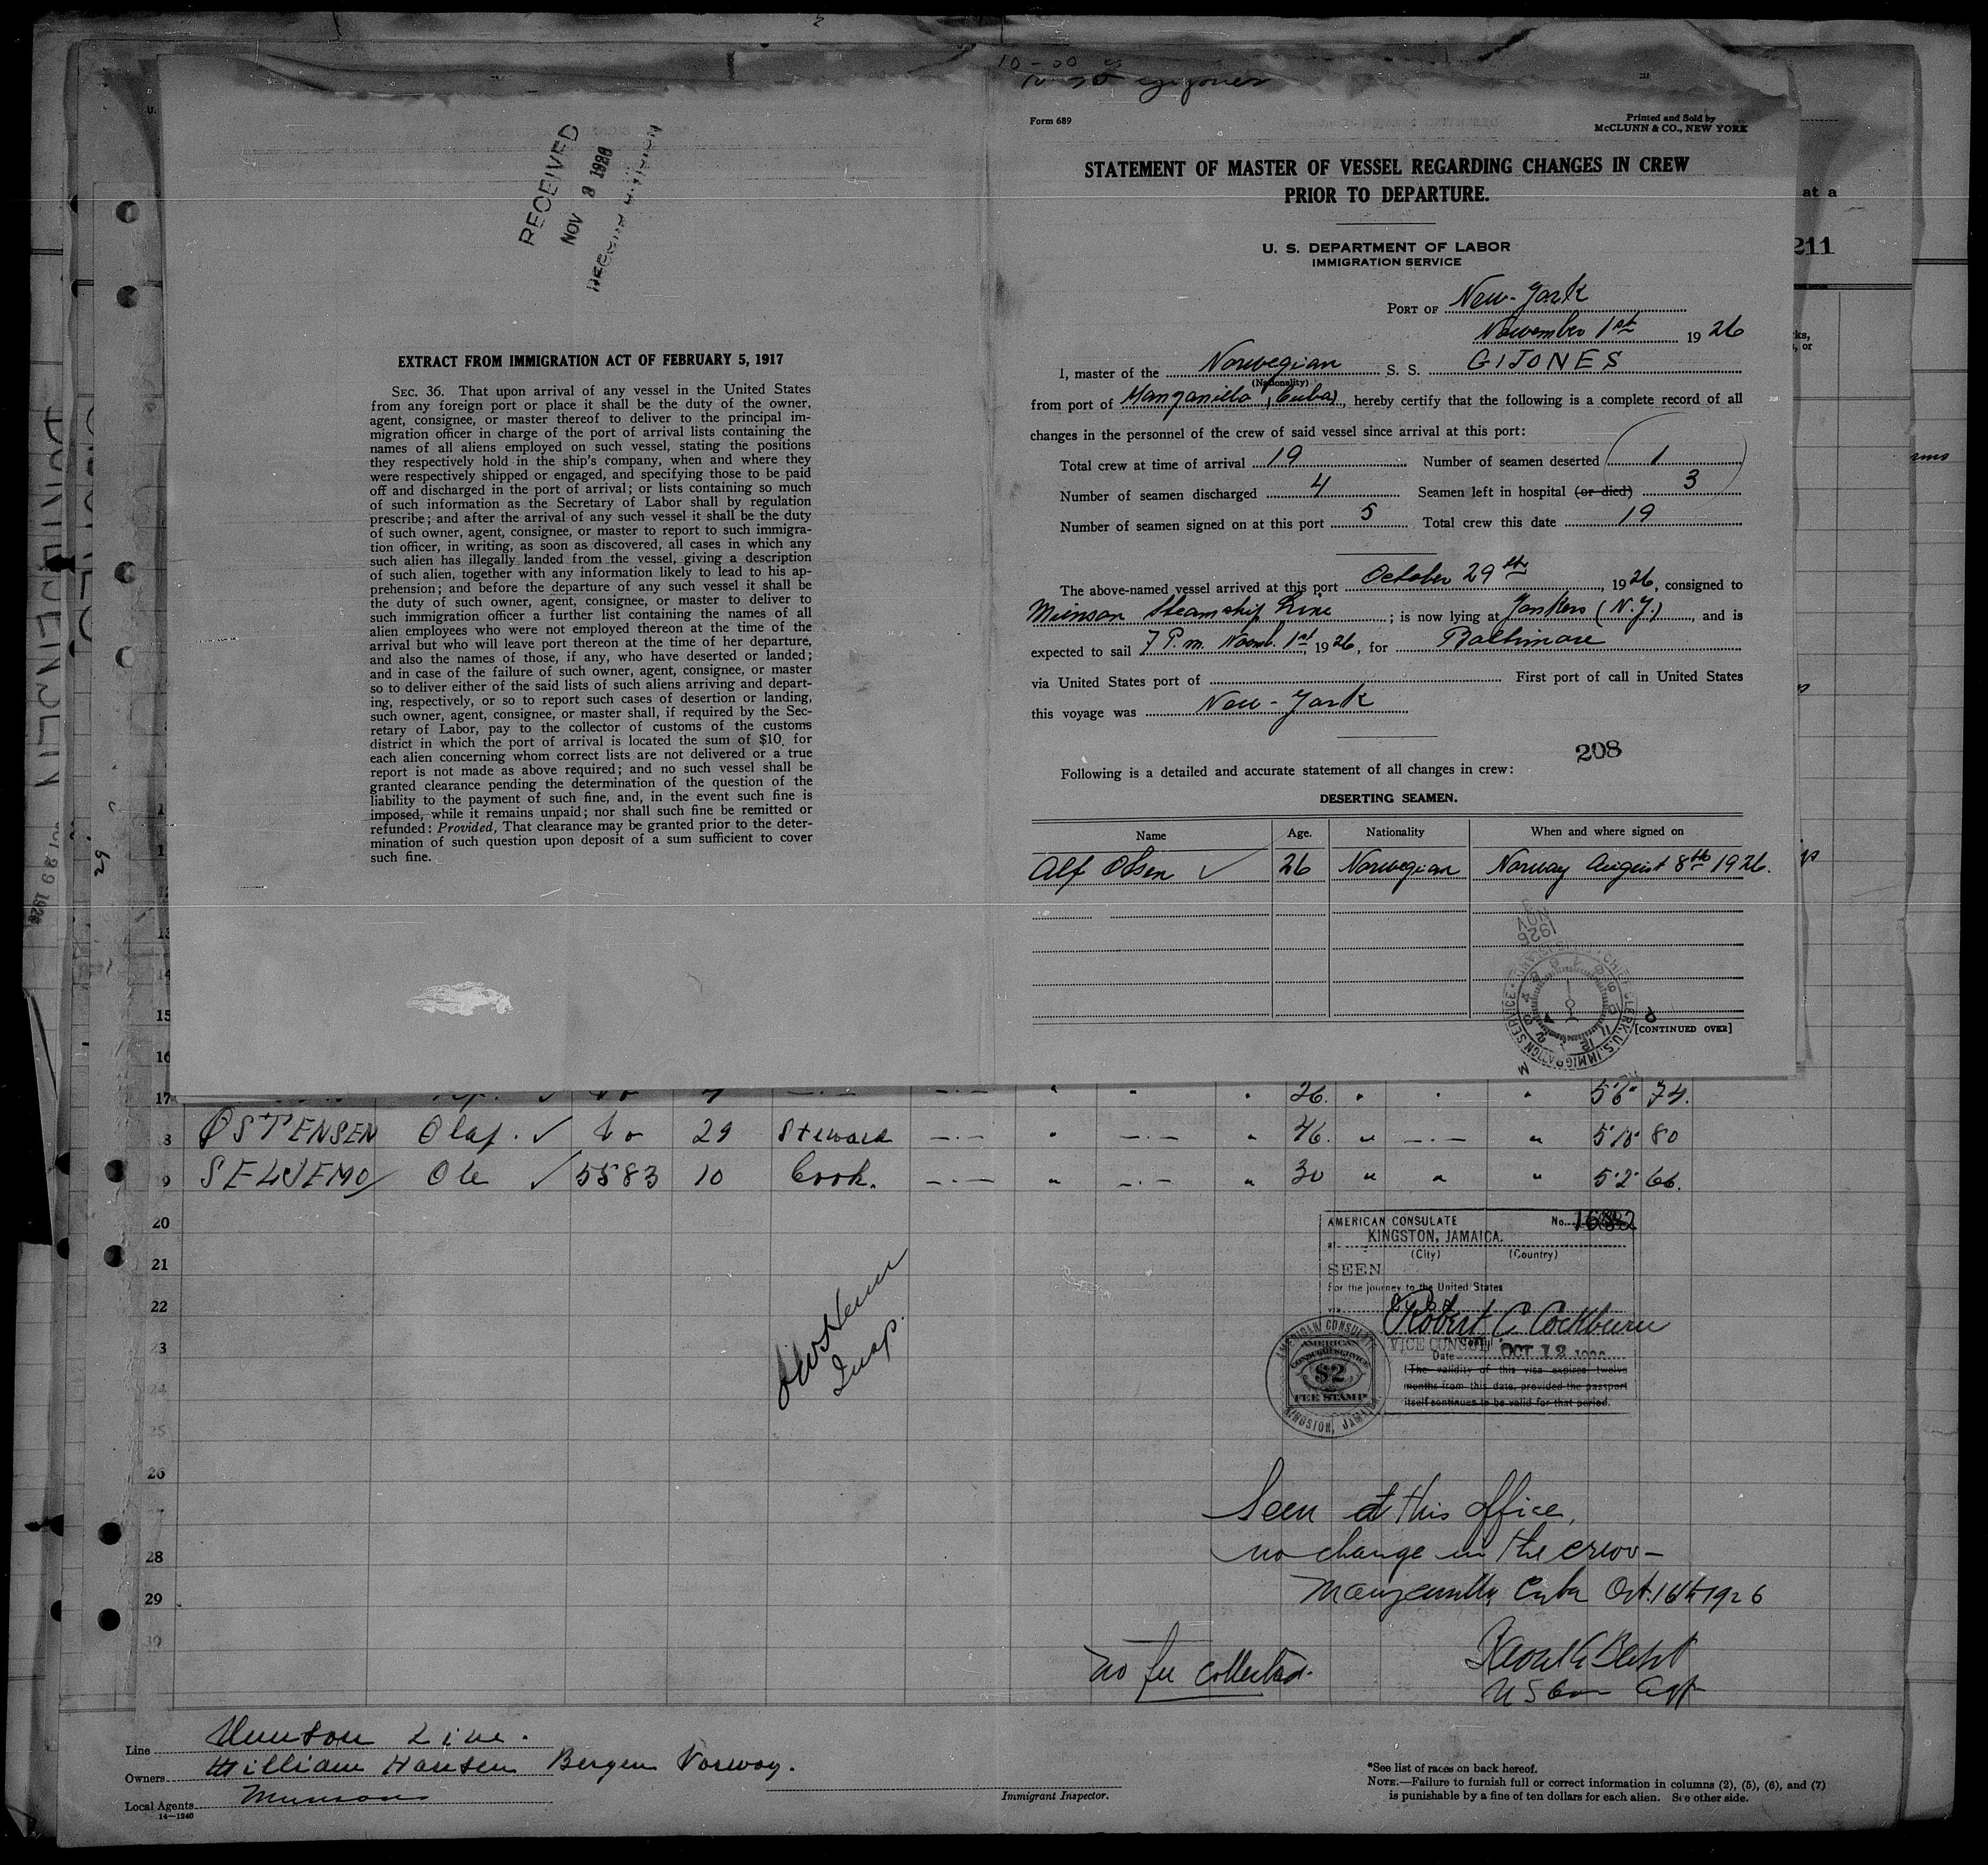 RECEIVED
NOV 8 1926
RECORD DIVISION
EXTRACT FROM IMMIGRATION ACT OF FEBRUARY 5, 1917
SEC. 36. That upon arrival of any vessel in the United States
from any foreign port or place it shall be the duty of the owner,
agent, consignee, or master thereof to deliver to the principal im-
migration officer in charge of the port of arrival lists containing the
names of all aliens employed on such vessel, stating the positions
they respectively hold in the ship's company, when and where they
were respectively shipped or engaged, and specifying those to be paid
off and discharged in the port of arrival; or lists containing so much
of such information as the Secretary of Labor shall by regulation
prescribe; and after the arrival of any such vessel it shall be the duty
of such owner, agent, consignee, or master to report to such immigra-
tion officer, in writing, as soon as discovered, all cases in which any
such alien has illegally landed from the vessel, giving a description
of such alien, together with any information likely to lead to his ap-
prehension; and before the departure of any such vessel it shall be
the duty of such owner, agent, consignee, or master to deliver to
such immigration officer a further list containing the names of all
alien employees who were not employed thereon at the time of the
arrival but who will leave port thereon at the time of her departure,
and also the names of those, if any, who have deserted or landed;
and in case of the failure of such owner, agent, consignee, or master
so to deliver either of the said lists of such aliens arriving and depart-
ing, respectively, or so to report such cases of desertion or landing,
such owner, agent, consignee, or master shall, if required by the Sec-
retary of Labor, pay to the collector of customs of the customs
district in which the port of arrival is located the sum of $10 for
each alien concerning whom correct lists are not delivered or a true
report is not made as above required; and no such vessel shall be
granted clearance pending the determination of the question of the
liability to the payment of such fine, and, in the event such fine is
imposed, while it remains unpaid; nor shall such fine be remitted or
refunded: Provided, That clearance may be granted prior to the deter-
mination of such question upon deposit of a sum sufficient to cover
such fine.
Form 689
Printed and Sold by
McCLUNN & CO., NEW YORK
STATEMENT OF MASTER OF VESSEL REGARDING CHANGES IN CREW
PRIOR TO DEPARTURE.
U. S. DEPARTMENT OF LABOR
IMMIGRATION SERVICE
PORT OF New-York
November 1st 1926
I, master of the Norwegian S. S. GIJONES
(Nationality)
from port of Manzanillo (Cuba), hereby certify that the following is a complete record of all
changes in the personnel of the crew of said vessel since arrival at this port:
Total crew at time of arrival 19 Number of seamen deserted 1
Number of seamen discharged 4 Seamen left in hospital (or died) 3
Number of seamen signed on at this port 5 Total crew this date 19
The above-named vessel arrived at this port October 29th, 1926, consigned to
Munson Steamship Line; is now lying at Yonkers (N.Y.), and is
expected to sail 7 P.m. Novmb. 1st, 1926, for Baltimore
via United States port of First port of call in United States
this voyage was New-York
208
Following is a detailed and accurate statement of all changes in crew:
DESERTING SEAMEN.
Name Age. Nationality When and where signed on
Alf Olsen ✓ 26 Norwegian Norway August 8th 1926.
1926
NOV
CHIEF CLERK, U.S. IMMIGRATION SERVICE
[CONTINUED OVER]
at a
211
15
16
17 26. 5'6" 74.
ØSTENSEN Olaf. ✓ do 29 Steward 46. 5'10" 80
SELJEMO Ole ✓ 5583 10 Cook. 30 5'2" 66.
20
21
22
23
24
25
26
28
29
30
Insp.
AMERICAN CONSULATE No.
at KINGSTON, JAMAICA.
(City) (Country)
SEEN
for the journey to the United States
via
Robert C Cockburn
VICE CONSUL
Date OCT 12
(The validity of this visa expires twelve
months from this date, provided the passport
itself continues to be valid for that period.
AMERICAN CONSULATE
AMERICAN
CONSULAR SERVICE
$2
FEE STAMP
KINGSTON, JAMAICA
Seen at this office,
no change in the crew-
Manzanillo, Cuba Oct. 16th 1926
no fee collected.
Line Munson Line.
Owners William Hansen Bergen Norway.
Local Agents Munson
14-1240
Immigrant Inspector.
*See list of races on back hereof.
NOTE.—Failure to furnish full or correct information in columns (2), (5), (6), and (7)
is punishable by a fine of ten dollars for each alien. See other side.